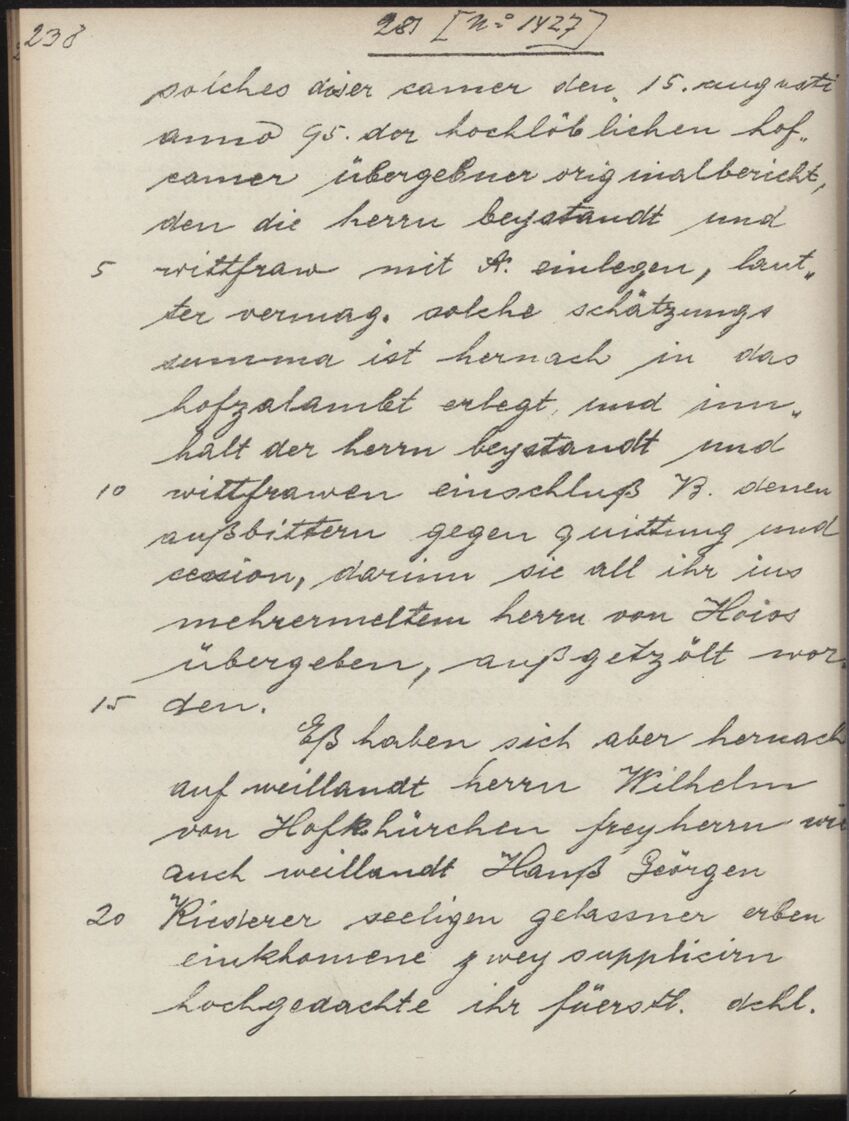 238
28) [No 1427]
solches diser camer den 15. augusti
anno 95. der hochlöblichen hof„
camer übergebner originalbericht,
den die herrn beystandt und
5 wittfraw mit A. einlegen, laut„
ter vermag. solche schätzungs
summa ist hernach in das
hofzalambt erlegt, und inn„
halt der herrn beystandt und
10 wittfrawen einschluß B. denen
außbittern gegen quittung und
cession, darinn sie all ihr ius
mehrermeltem herrn von Hoios
übergeben, außgetzölt wor„
15 den.
Eß haben sich aber hernach
auf weillandt herrn Wilhelm
von Hofkhürchen freyherrn wie
auch weillandt Hanß Geörgen
20 Riederer seeligen gelassner erben
einkhomene zwey supplicirn
hochgedachte ihr füerstl. dchl.